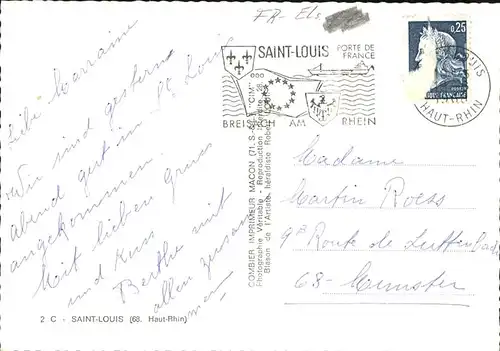 FR-Els
SAINT-LOUIS
PORTE DE
FRANCE
BREISACH AM RHEIN
0,25
HAUT-RHIN
Liebe
Wir sind gestern
Abend gut in St. Louis
angekommen.
Mit lieben Gruss
und Kuss
Berthe mit
allen zusam
men
COMBIER IMPRIMEUR MACON (71. S.-&-L.) "CIM"
Photographie Véritable - Reproduction Interdite
Blason de l'Artiste héraldiste Robert
Madame
Martin Roess
9B Route de Luttenbach
68 - Munster
2 C - SAINT-LOUIS (68. Haut-Rhin)